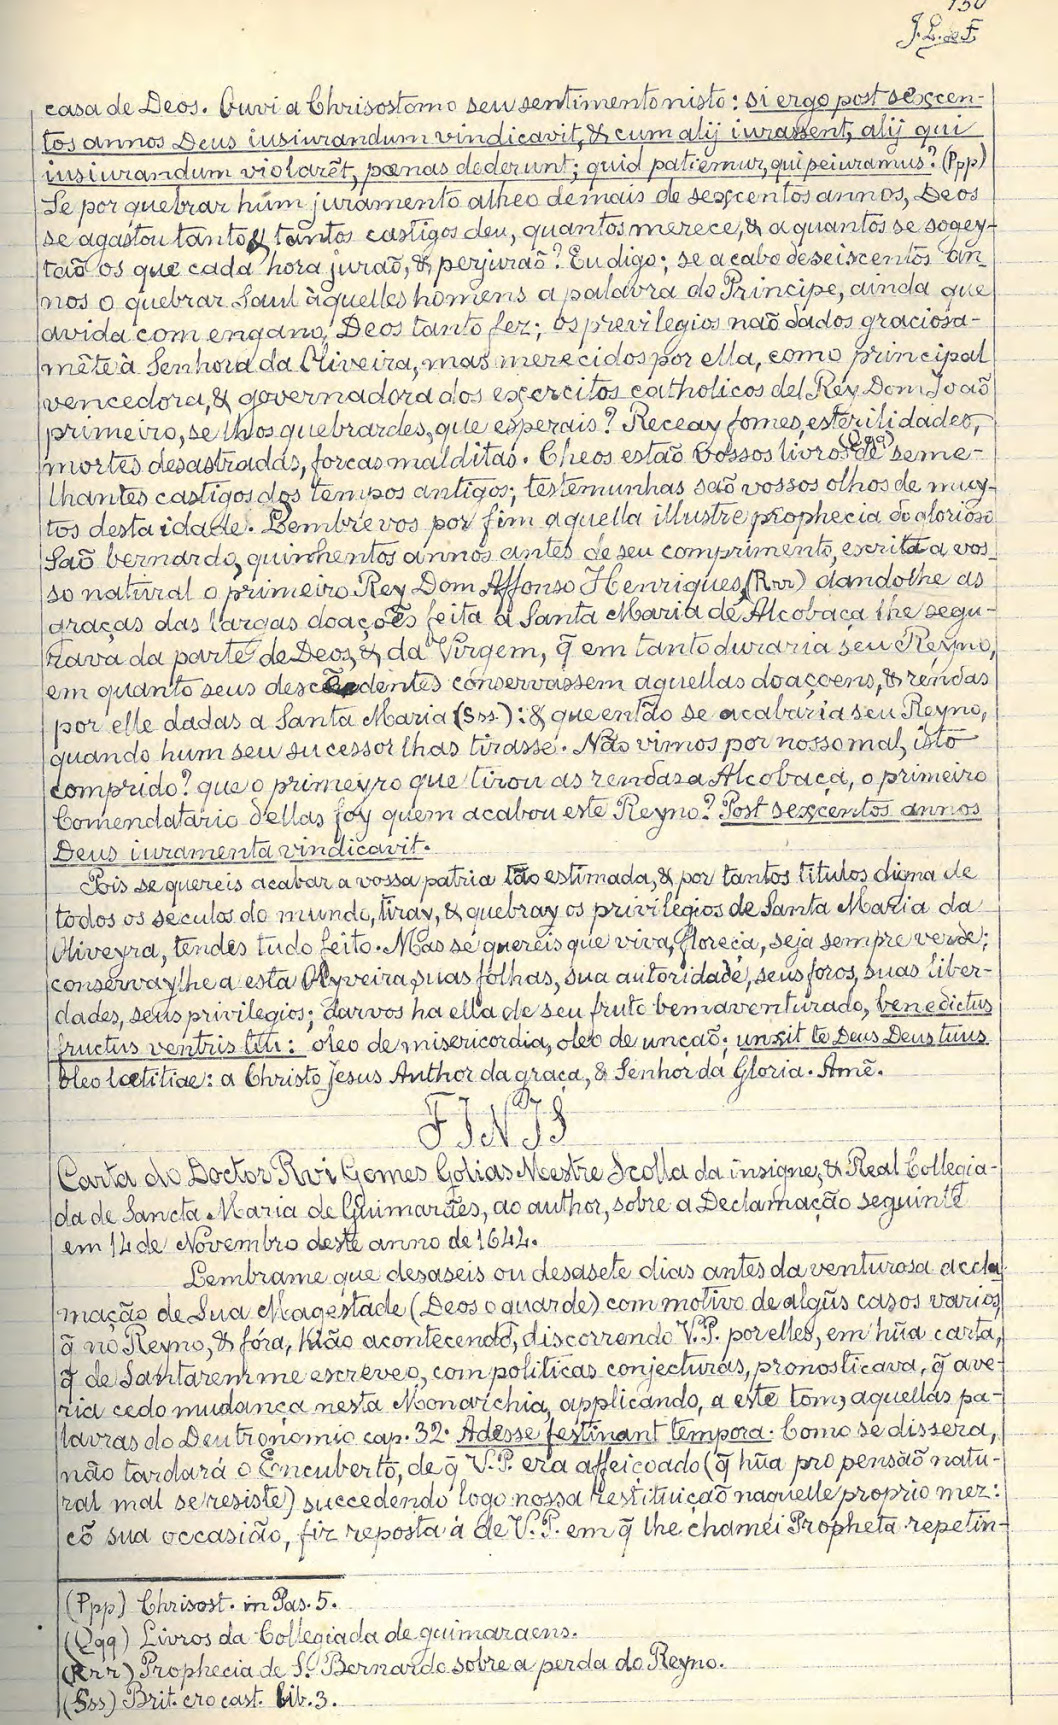 130
J. L. de F.
casa de Deos. Ouvi a Chrisostomo seu sentimento nisto: si ergo post sexcen-
tos annos Deus iusiurandum vindicavit, & cum alij iurassent, alij qui
iusiurandum violarẽt, pœnas dederunt; quid patiemur, qui peiuramus? (Ppp)
Se por quebrar hum juramento alheo de mais de sexcentos annos, Deos
se agastou tanto & tantos castigos deu, quantos merece, & a quantos se sogey-
taõ os que cada hora juraõ, & perjuraõ? Eu digo; se a cabo de seiscentos an-
nos o quebrar Saul àquelles homens a palavra do Principe, ainda que
avida com engano, Deos tanto fez; os previlegios naõ dados graciosa-
mẽte à Senhora da Oliveira, mas merecidos por ella, como principal
vencedora, & governadora dos exercitos catholicos del Rey Dom Joaõ
primeiro, se lhos quebrardes, que esperais? Receay fomes, esterilidades,
mortes desastradas, forcas malditas. Cheos estão vossos livros (Qqq) de seme-
lhantes castigos dos tempos antigos; testemunhas saõ vossos olhos de muy-
tos desta idade. Lembrevos por fim aquella illustre prophecia do glorioso
Saõ bernardo, quinhentos annos antes de seu comprimento, escrita a vos-
so natural o primeiro Rey Dom Affonso Henriques, (Rrr) dandolhe as
graças das largas doaçoẽs feita a Santa Maria de Alcobaça lhe segu-
rava da parte de Deos, & da Virgem, q̃ em tanto duraria seu Reyno,
em quanto seus descẽdentes conservassem aquellas doaçoens, & rendas
por elle dadas a Santa Maria (Sss): & que então se acabaria seu Reyno,
quando hum seu sucessor lhas tirasse. Não vimos por nosso mal, isto
comprido? que o primeyro que tirou as rendas a Alcobaça, o primeiro
Comendatario dellas foy quem acabou este Reyno? Post sexcentos annos
Deus iuramenta vindicavit.
Pois se quereis acabar a vossa patria tão estimada, & por tantos titulos digna de
todos os seculos do mundo, tiray, & quebray os privilegios de Santa Maria da
Oliveyra, tendes tudo feito. Mas se quereis que viva, floreça, seja sempre verde;
conservaylhe a esta Olyveira suas folhas, sua autoridade, seus foros, suas liber-
dades, seus privilegios; darvos ha ella de seu fruto bemaventurado, benedictus
fructus ventris tui: oleo de misericordia, oleo de unção; unxit te Deus Deus tuus
oleo lætitiae: a Christo Jesus Author da graça, & Senhor da Gloria. Amẽ.
FINIS
Carta do Doctor Rvi Gomes Golias Mestre Scolla da insigne, & Real Collegia-
da de Sancta Maria de Guimarães, ao author, sobre a Declamação seguinte
em 14 de Novembro deste anno de 1642.
Lembrame que desaseis ou desasete dias antes da venturosa accla
mação de Sua Magestade (Deos o guarde) com motivo de algũs casos varios,
q̃ no Reyno, & fóra, hião acontecendo, discorrendo V.P. por elles, em hũa carta,
q̃ de Santarem me escreveo, com politicas conjecturas, pronosticava, q̃ ave-
ria cedo mudança nesta Monarchia, applicando, a este tom, aquellas pa-
lavras do Deutronomio cap. 32. Adesse festinant tempora. Como se dissera,
não tardará o Encuberto, de q̃ V.P. era affeiçoado (q̃ hũa propensão natu-
ral mal se resiste) succedendo logo nossa restituição naquelle proprio mez:
cõ sua occasião, fiz reposta á de V.P. em q̃ lhe chamei Propheta repetin-
(Ppp) Chrisost. in Pas. 5.
(Qqq) Livros da Collegiada de guimaraens.
(Rrr) Prophecia de S. Bernardo sobre a perda do Reyno.
(Sss) Brit. cro cast. lib. 3.